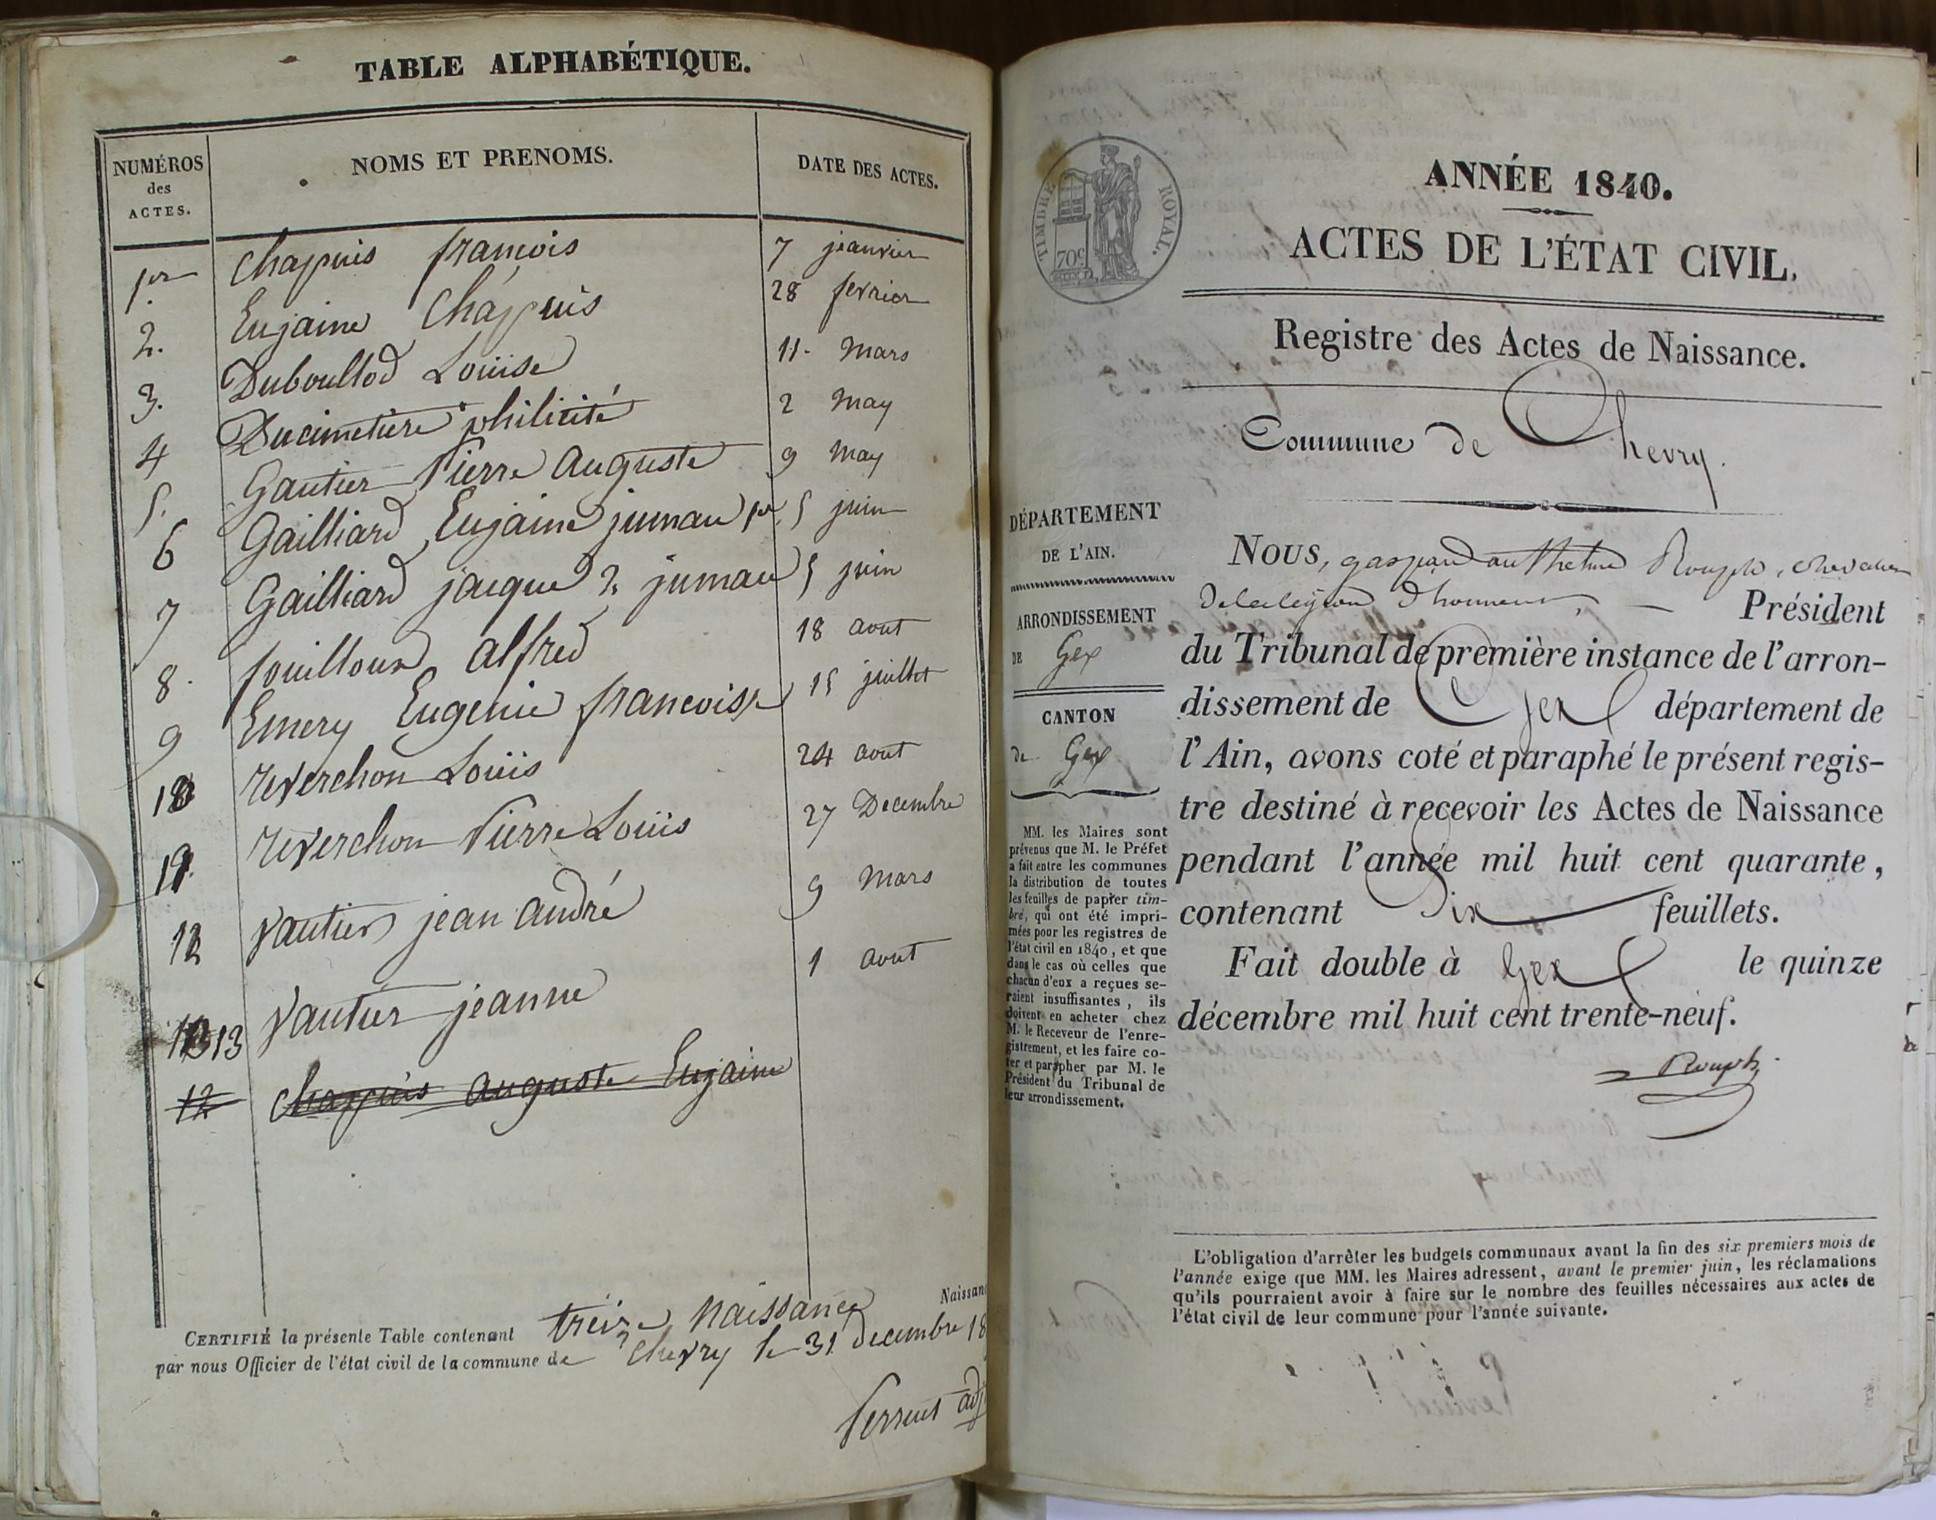 TABLE ALPHABÉTIQUE.
NUMÉROS des ACTES. NOMS ET PRENOMS. DATE DES ACTES.
1er Chappuis françois 7 jeanvier
2. Eujaine Chappuis 28 fevrier
3. Duboullod Louise 11. Mars
4 Ducimetiere philicité 2 May
5. Gautier Pierre Auguste 9 May
6 Gailliard Eujaine jumau 1er 5 juin
7 Gailliard jacque 2 jumau 5 juin
8. fouilloux alfred 18 aout
9 Emery Eugenie francoise 15 juillet
10 reverchon Louis 24 aout
11. reverchon Pierre Louis 27 Decembre
12 Vautier jean andré 9 Mars
13 Vautier jeanne 1 aout
12 Chappuis auguste Eujaine
CERTIFIÉ la présente Table contenant treize Naissances Naissan
par nous Officier de l'état civil de la commune de Chevry le 31 decembre 18
Perrut adj
TIMBRE ROYAL.
70c
ANNÉE 1840.
ACTES DE L'ÉTAT CIVIL.
Registre des Actes de Naissance.
Commune de Chevry.
DÉPARTEMENT
DE L'AIN.
ARRONDISSEMENT
DE Gex
CANTON
de Gex
MM. les Maires sont
prévenus que M. le Préfet
a fait entre les communes
la distribution de toutes
les feuilles de papier tim-
bré, qui ont été impri-
mées pour les registres de
l'état civil en 1840, et que
dans le cas où celles que
chacun d'eux a reçues se-
raient insuffisantes, ils
doivent en acheter chez
M. le Receveur de l'enre-
gistrement, et les faire co-
ter et parapher par M. le
Président du Tribunal de
leur arrondissement.
NOUS, gaspard anthelme Rouph, chevalier
de la légion d'honneur, Président
du Tribunal de première instance de l'arron-
dissement de Gex département de
l'Ain, avons coté et paraphé le présent regis-
tre destiné à recevoir les Actes de Naissance
pendant l'année mil huit cent quarante,
contenant Dix feuillets.
Fait double à Gex le quinze
décembre mil huit cent trente-neuf.
L'obligation d'arrêter les budgets communaux avant la fin des six premiers mois de
l'année exige que MM. les Maires adressent, avant le premier juin, les réclamations
qu'ils pourraient avoir à faire sur le nombre des feuilles nécessaires aux actes de
l'état civil de leur commune pour l'année suivante.